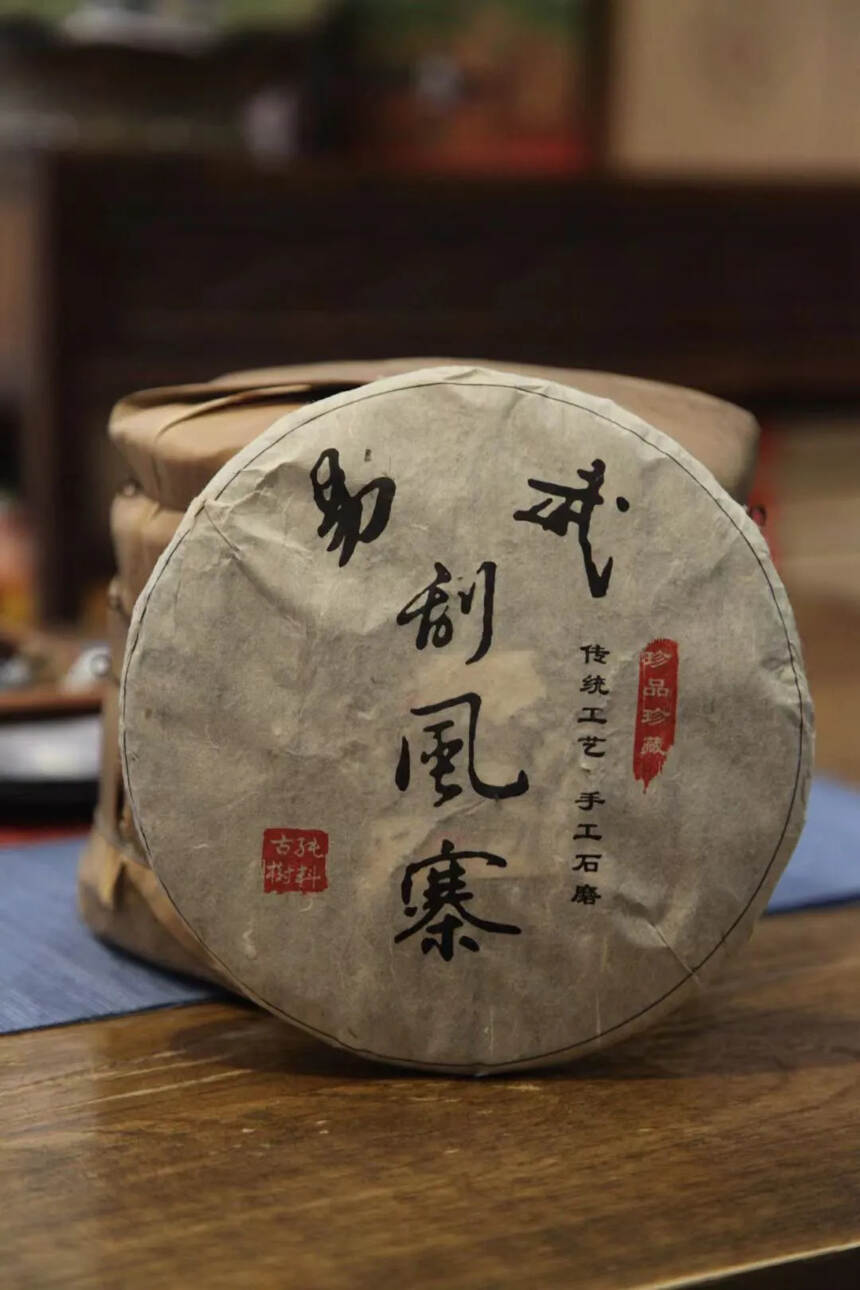 易武
刮風寨
传统工艺、手工石磨
珍品珍藏
纯料
古樹